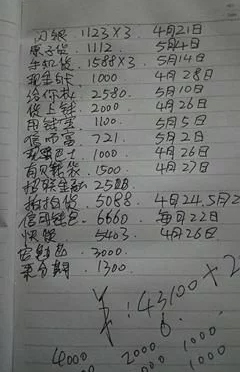 闪银 1123×3 4月21日
原子贷 1112 5月4日
手机贷 1588×3 5月14日
现金卡 1000 4月28日
给你花 2580 5月10日
贷上钱 2000 4月26日
用钱宝 1100 5月5日
信而富 721 5月2日
现金巴士 1000 4月26日
有贝钱袋 1500 4月27日
招联金融
拍拍贷 5088 4月24.5月2
信用钱包 6660 每月22日
快贷 5403 4月26日
3000
来分期 1300
¥:43100+2
4000 2000 1000
1000